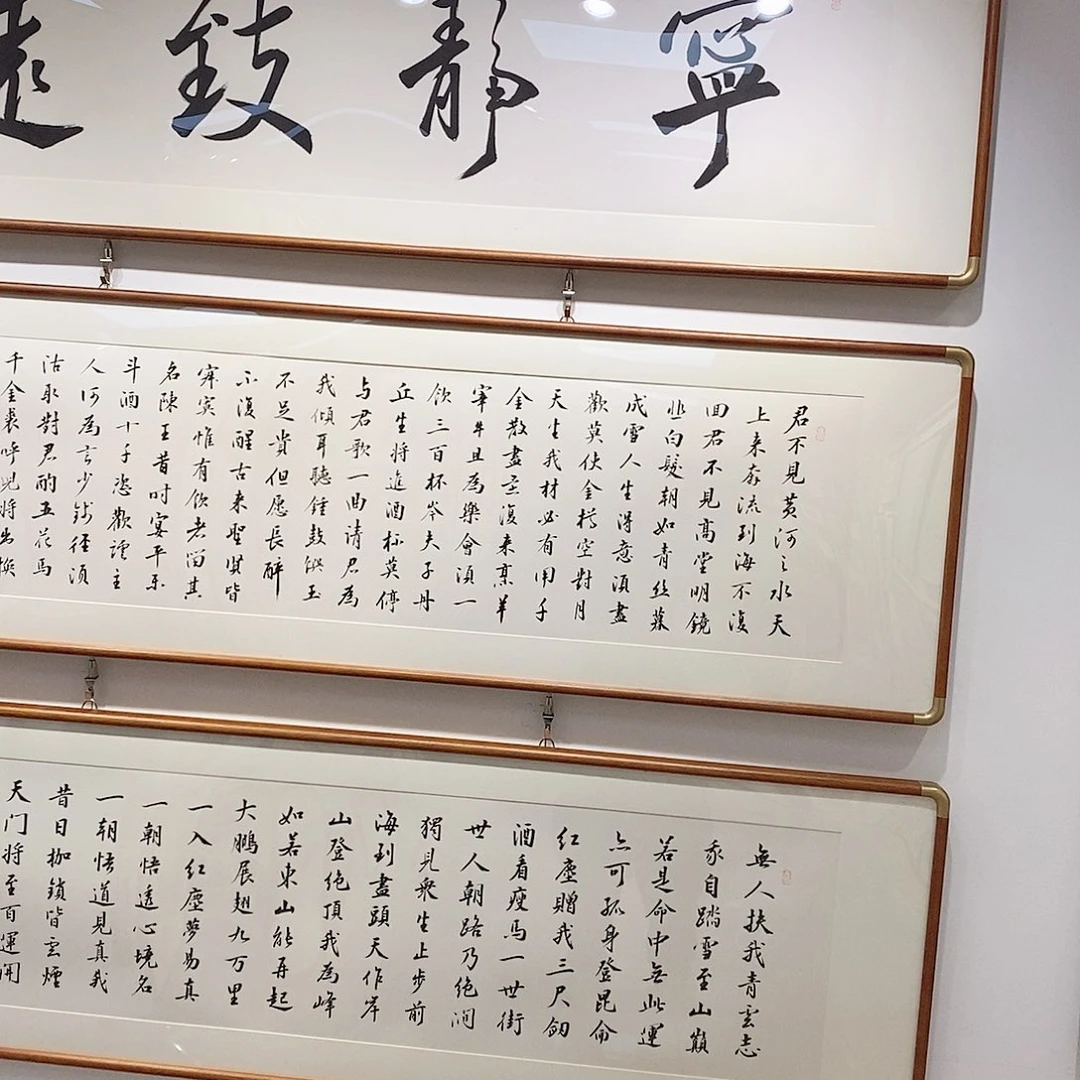 寧靜致遠
君不見黃河之水天
上来奔流到海不復
回君不見高堂明鏡
悲白髮朝如青丝暮
成雪人生得意須盡
歡莫使金樽空對月
天生我材必有用千
金散盡還復来烹羊
宰牛且為樂會須一
飲三百杯岑夫子丹
丘生将進酒杯莫停
与君歌一曲请君為
我傾耳聽鍾鼓饌玉
不足貴但愿長醉
不復醒古来聖賢皆
寂寞惟有飲者留其
名陳王昔时宴平乐
斗酒十千恣歡謔主
人何為言少錢徑須
沽取對君酌五花馬
千金裘呼兒将出换
無人扶我青雲志
我自踏雪至山巔
若是命中無此運
亦可孤身登昆侖
紅塵贈我三尺劍
酒看瘦馬一世街
世人朝路乃绝澗
獨見眾生止步前
海到盡頭天作岸
山登绝頂我為峰
如若東山能再起
大鵬展翅九万里
一入紅塵夢易真
一朝悟透心境名
一朝悟道見真我
昔日枷鎖皆雲煙
天门将至百運開